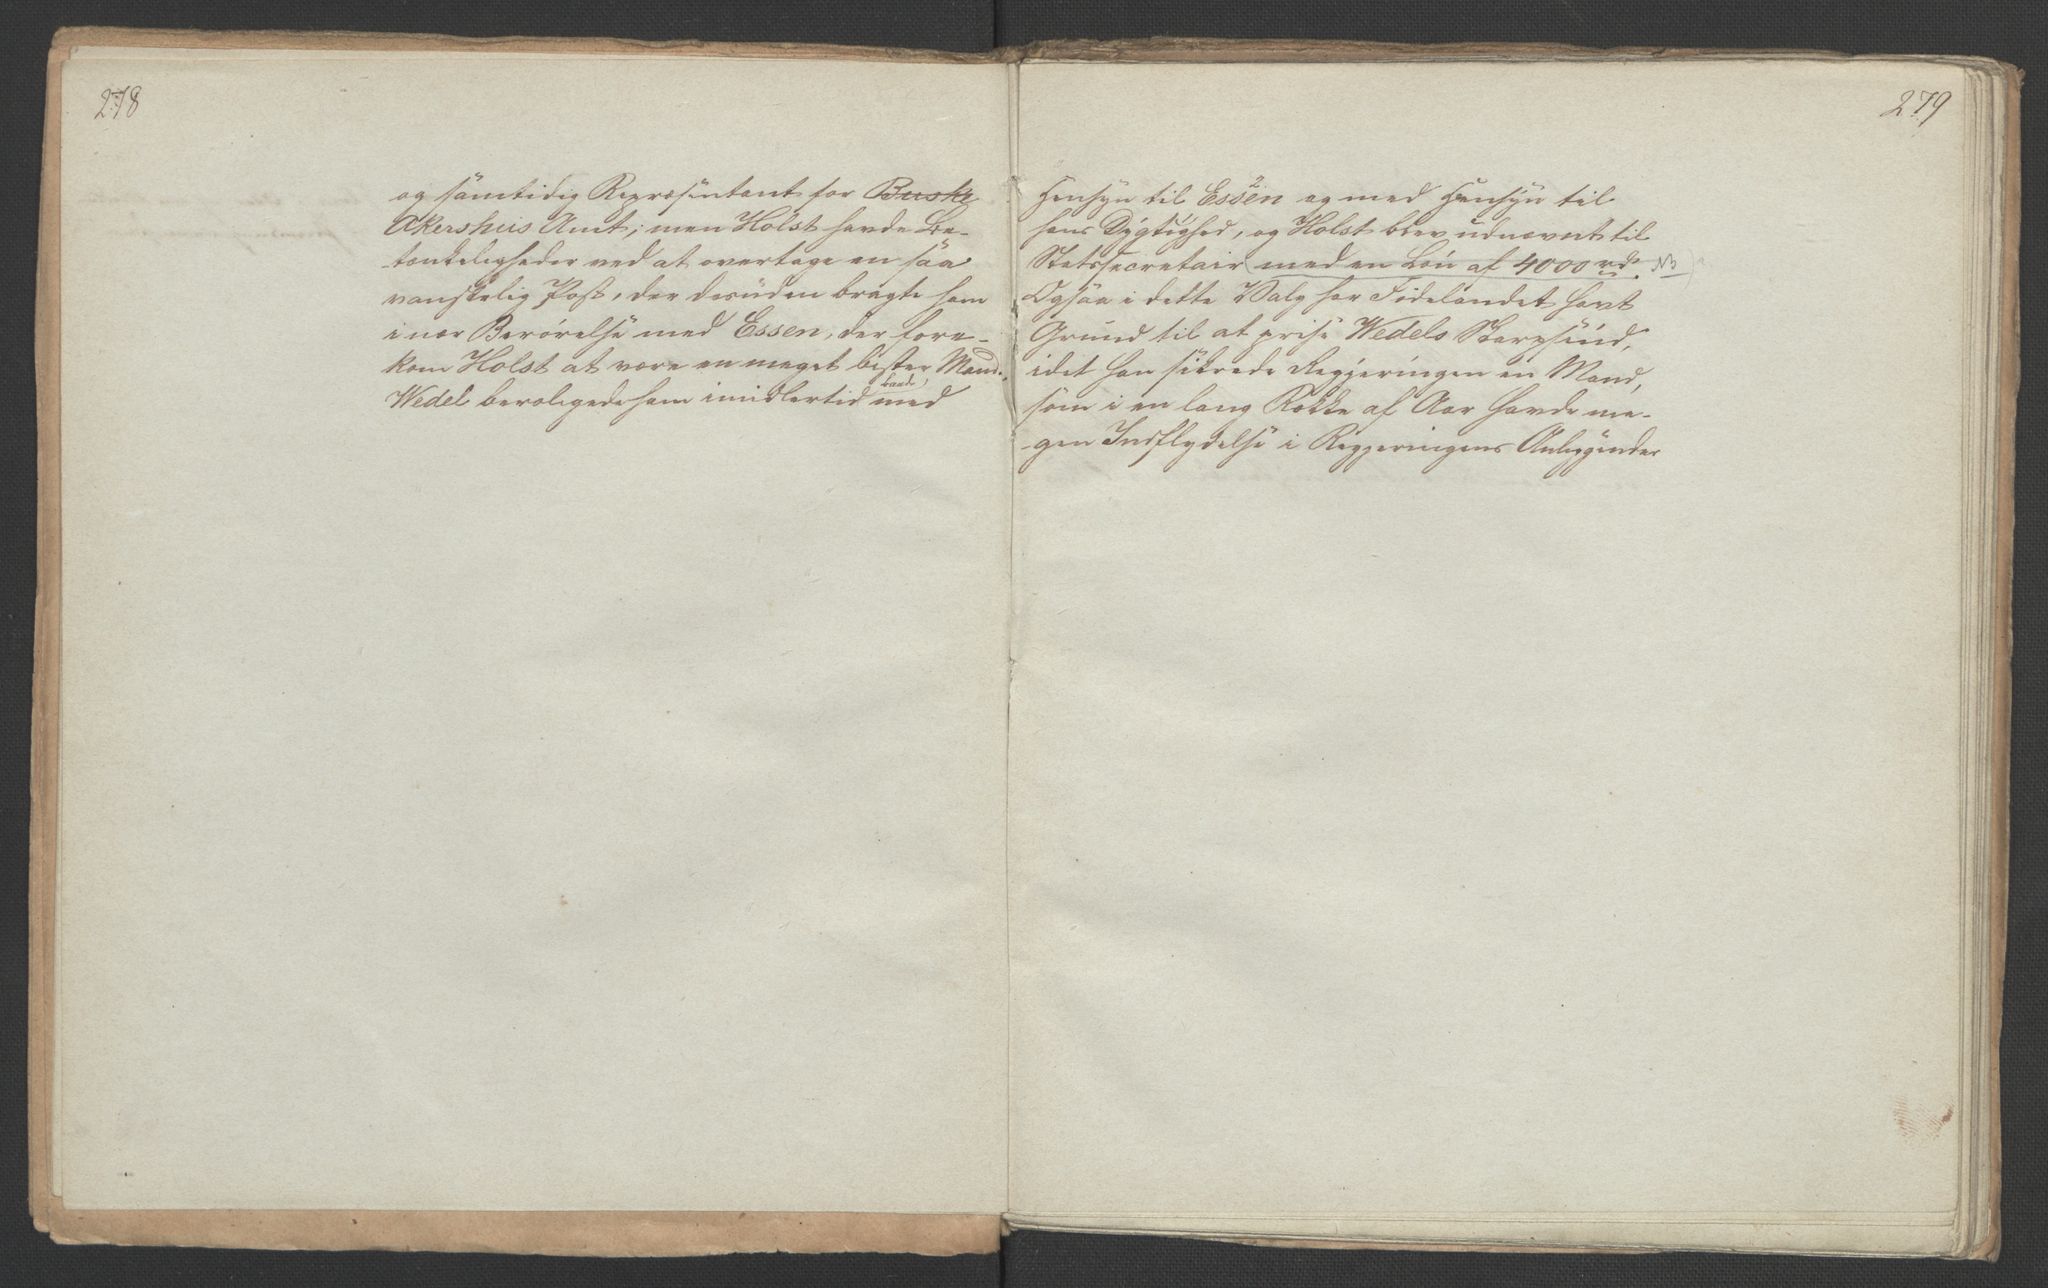 278
og samtidig Repræsentant for Busk
Akershuus Amt; men Holst havde Be-
tænkeligheder ved at overtage en saa
vanskelig Post, der desuden bragte ham
i nær Berørelse med Essen, der fore-
kom Holst at være en meget bister Mand.
Wedel beroligede ham imidlertid baade med
279
Hensyn til Essen og med Hensyn til
hans Dygtighed, og Holst blev udnævnt til
Statssecretair med en Løn af 4000 rd. NB
Ogsaa i dette Valg har Fødelandet havt
Grund til at prise Wedels Skarpsind,
idet han sikrede Regjeringen en Mand,
som i en lang Række af Aar havde me-
gen Indflydelse i Regjeringens Anliggender